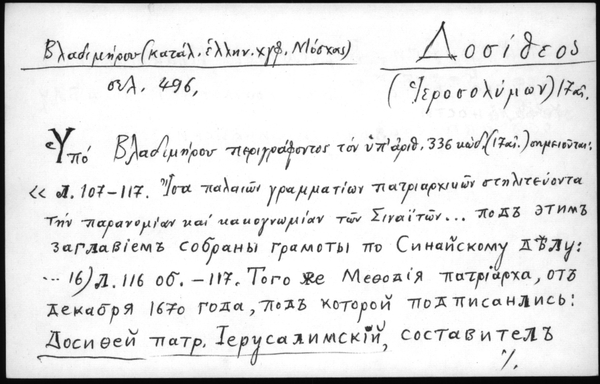 Βλαδιμήρου (κατάλ. ἑλλην. χγφ. Μόσχας)
σελ. 496,
Δοσίθεος
(Ἱεροσολύμων) 17 αἰ.
Ὑπό Βλαδιμήρου περιγράφοντος τόν ὑπ' ἀριθ. 336 κώδ. (17 αἰ.) σημειοῦται:
« Л. 107–117. Ἴσα παλαιῶν γραμματίων πατριαρχικῶν στηλιτεύοντα
τήν παρανομίαν καί κακογνωμίαν τῶν Σιναϊτῶν... подъ этимъ
заглавіемъ собраны грамоты по Синайскому дѣлу:
... 16) Л. 116 об. – 117. Того же Меθодія патріарха, отъ
декабря 1670 года, подъ которой подписанлись:
Досиθей патр. Іерусалимскій, составителъ
%.